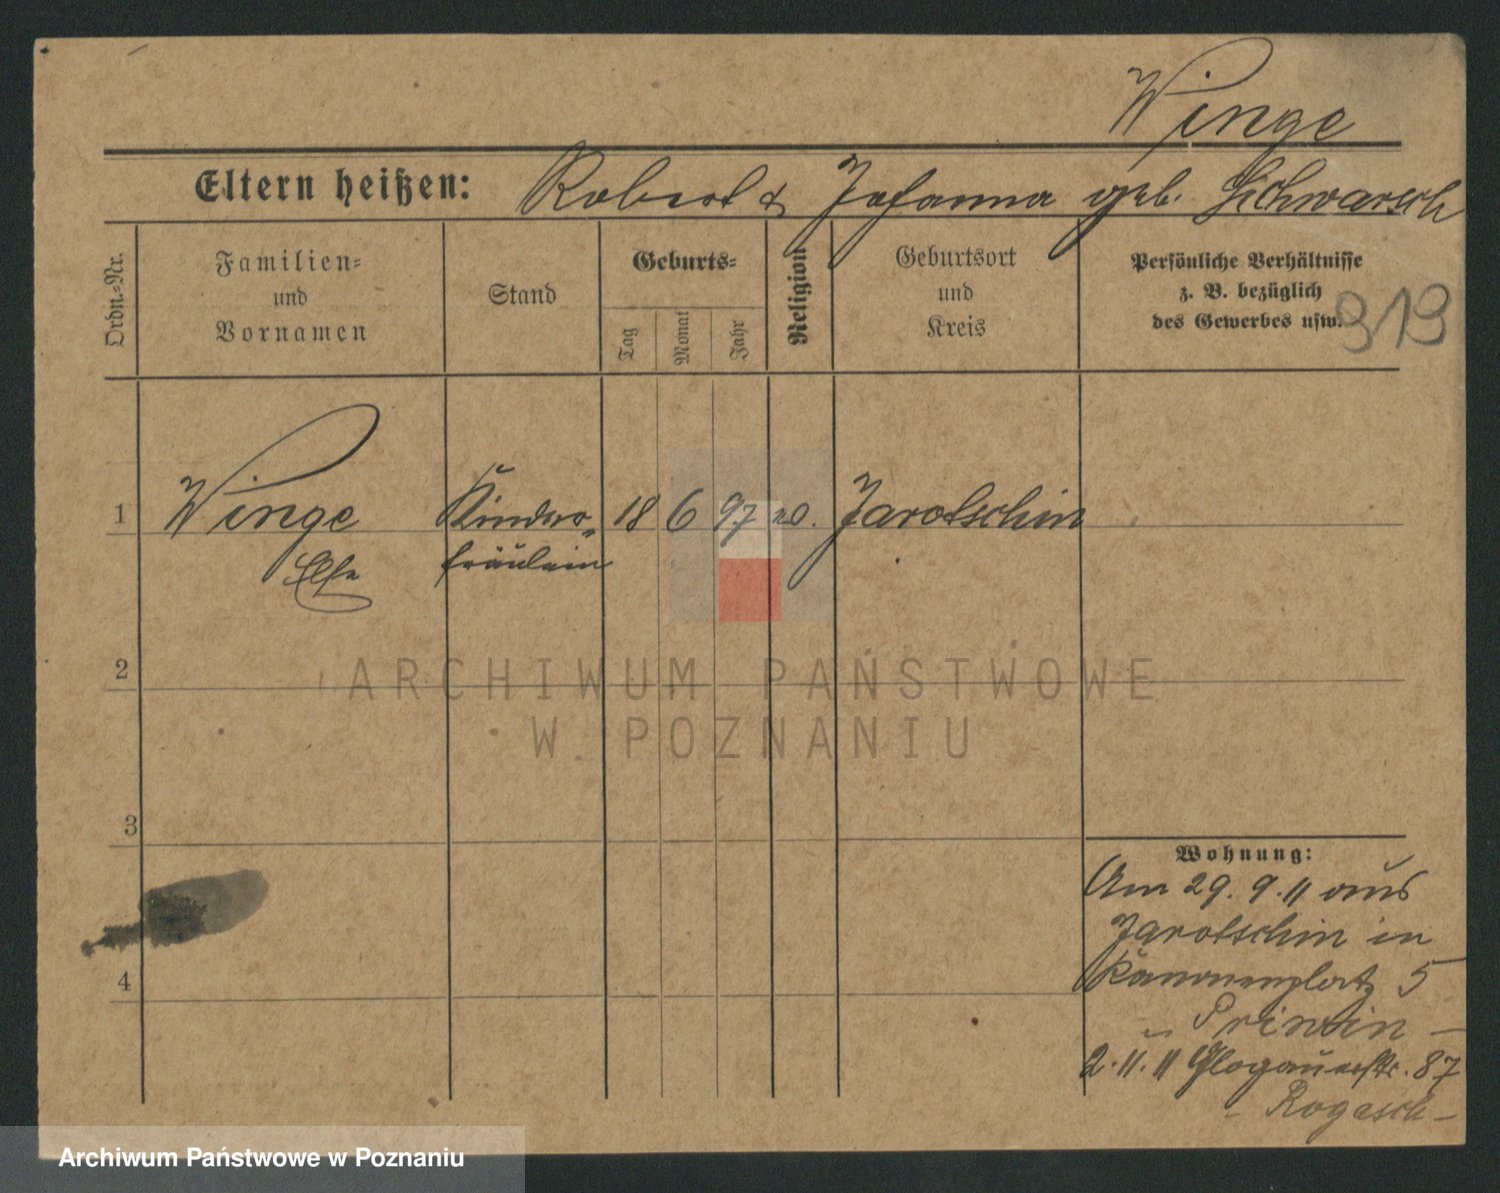 Winge
Eltern heißen: Robert & Johanna geb. Schwarsch
Ordn.-Nr.
Familien- und Vornamen
Stand
Geburts-
Tag
Monat
Jahr
Religion
Geburtsort und Kreis
Persönliche Verhältnisse
z. B. bezüglich
des Gewerbes usw.
919
1 Winge Kinder- 18 6 97 Jarotschin
Else fräulein
2
3
4
ARCHIWUM PAŃSTWOWE
W POZNANIU
Wohnung:
Am 29. 9. 11 aus
Jarotschin in
Kanonenplatz 5
2. 11. 11 Glogauerstr. 87
- Rogasch -
Archiwum Państwowe w Poznaniu